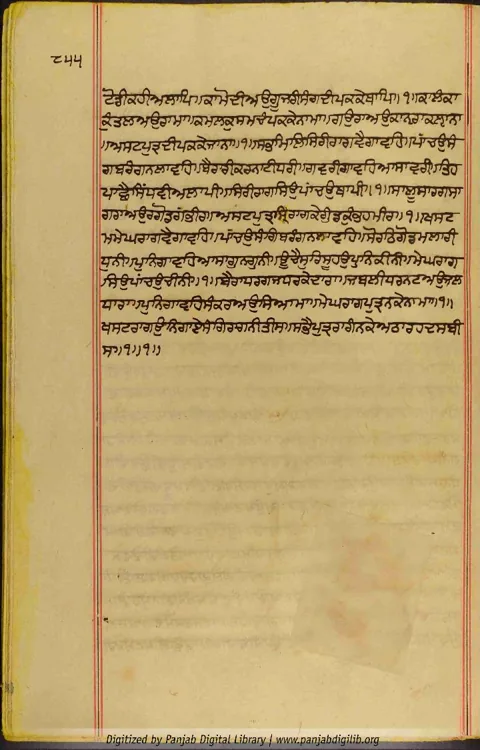 ੮੫੫
ਟੋਡੀਕਹੀਅਲਾਪਿ॥ਕਾਮੋਦੀਅਉਗੂਜਰੀਸੰਗਦੀਪਕਕੇਥਾਪਿ॥੧॥ਕਾਲੰਕਾ
ਕੁੰਤਲਅਉਰਾਮਾ॥ਕਮਲਕੁਸਮਚੰਪਕਕੇਨਾਮਾ॥ਗਉਰਾਅਉਕਾਨਰਾਕਲ੍ਯਾਨਾ
॥ਅਸਟਪੁਤ੍ਰਦੀਪਕਕੇਜਾਨਾ॥੧॥ਸਭਮਿਲਿਸਿਰੀਰਾਗਵੈਗਾਵਹਿ॥ਪਾਂਚਉਸੰ
ਗਬਰੰਗਨਲਾਵਹਿ॥ਬੈਰਾਰੀਕਰਨਾਟੀਧਰੀ॥ਗਵਰੀਗਾਵਹਿਆਸਾਵਰੀ॥ਤਿਹ
ਪਾਛੈਸਿੰਧਵੀਅਲਾਪੀ॥ਸਿਰੀਰਾਗਸਿਉਪਾਂਚਉਥਾਪੀ॥੧॥ਸਾਲੂਸਾਰਗਸਾ
ਗਰਾਅਉਰਗੋਡਗੰਭੀਰ॥ਅਸਟਪੁਤ੍ਰਸ੍ਰੀਰਾਗਕੇਗੁੰਡਕੁੰਭਹਮੀਰ॥੧॥ਖਸਟ
ਮਮੇਘਰਾਗਵੈਗਾਵਹਿ॥ਪਾਂਚਉਸੰਗਿਬਰੰਗਨਲਾਵਹਿ॥ਸੋਰਠਿਗੋਡਮਲਾਰੀ
ਧੁਨੀ॥ਪੁਨਿਗਾਵਹਿਆਸਾਗੁਨਗੁਨੀ॥ਊਚੈਸੁਰਿਸੂਹਉਪੁਨਿਕੀਨੀ॥ਮੇਘਰਾਗ
ਸਿਉਪਾਂਚਉਚੀਨੀ॥੧॥ਬੈਰਾਧਰਗਜਧਰਕੇਦਾਰਾ॥ਜਬਲੀਧਰਨਟਅਉਜਲ
ਧਾਰਾ॥ਪੁਨਿਗਾਵਹਿਸੰਕਰਅਉਸਿਆਮਾ॥ਮੇਘਰਾਗਪੁਤ੍ਰਨਕੇਨਾਮਾ॥੧॥
ਖਸਟਰਾਗਉਨਿਗਾਏਸੰਗਿਰਾਗਨੀਤੀਸ॥ਸਭੈਪੁਤ੍ਰਰਾਗੰਨਕੇਅਠਾਰਹਦਸਬੀ
ਸ॥੧॥੧॥
Digitized by Panjab Digital Library | www.panjabdigilib.org